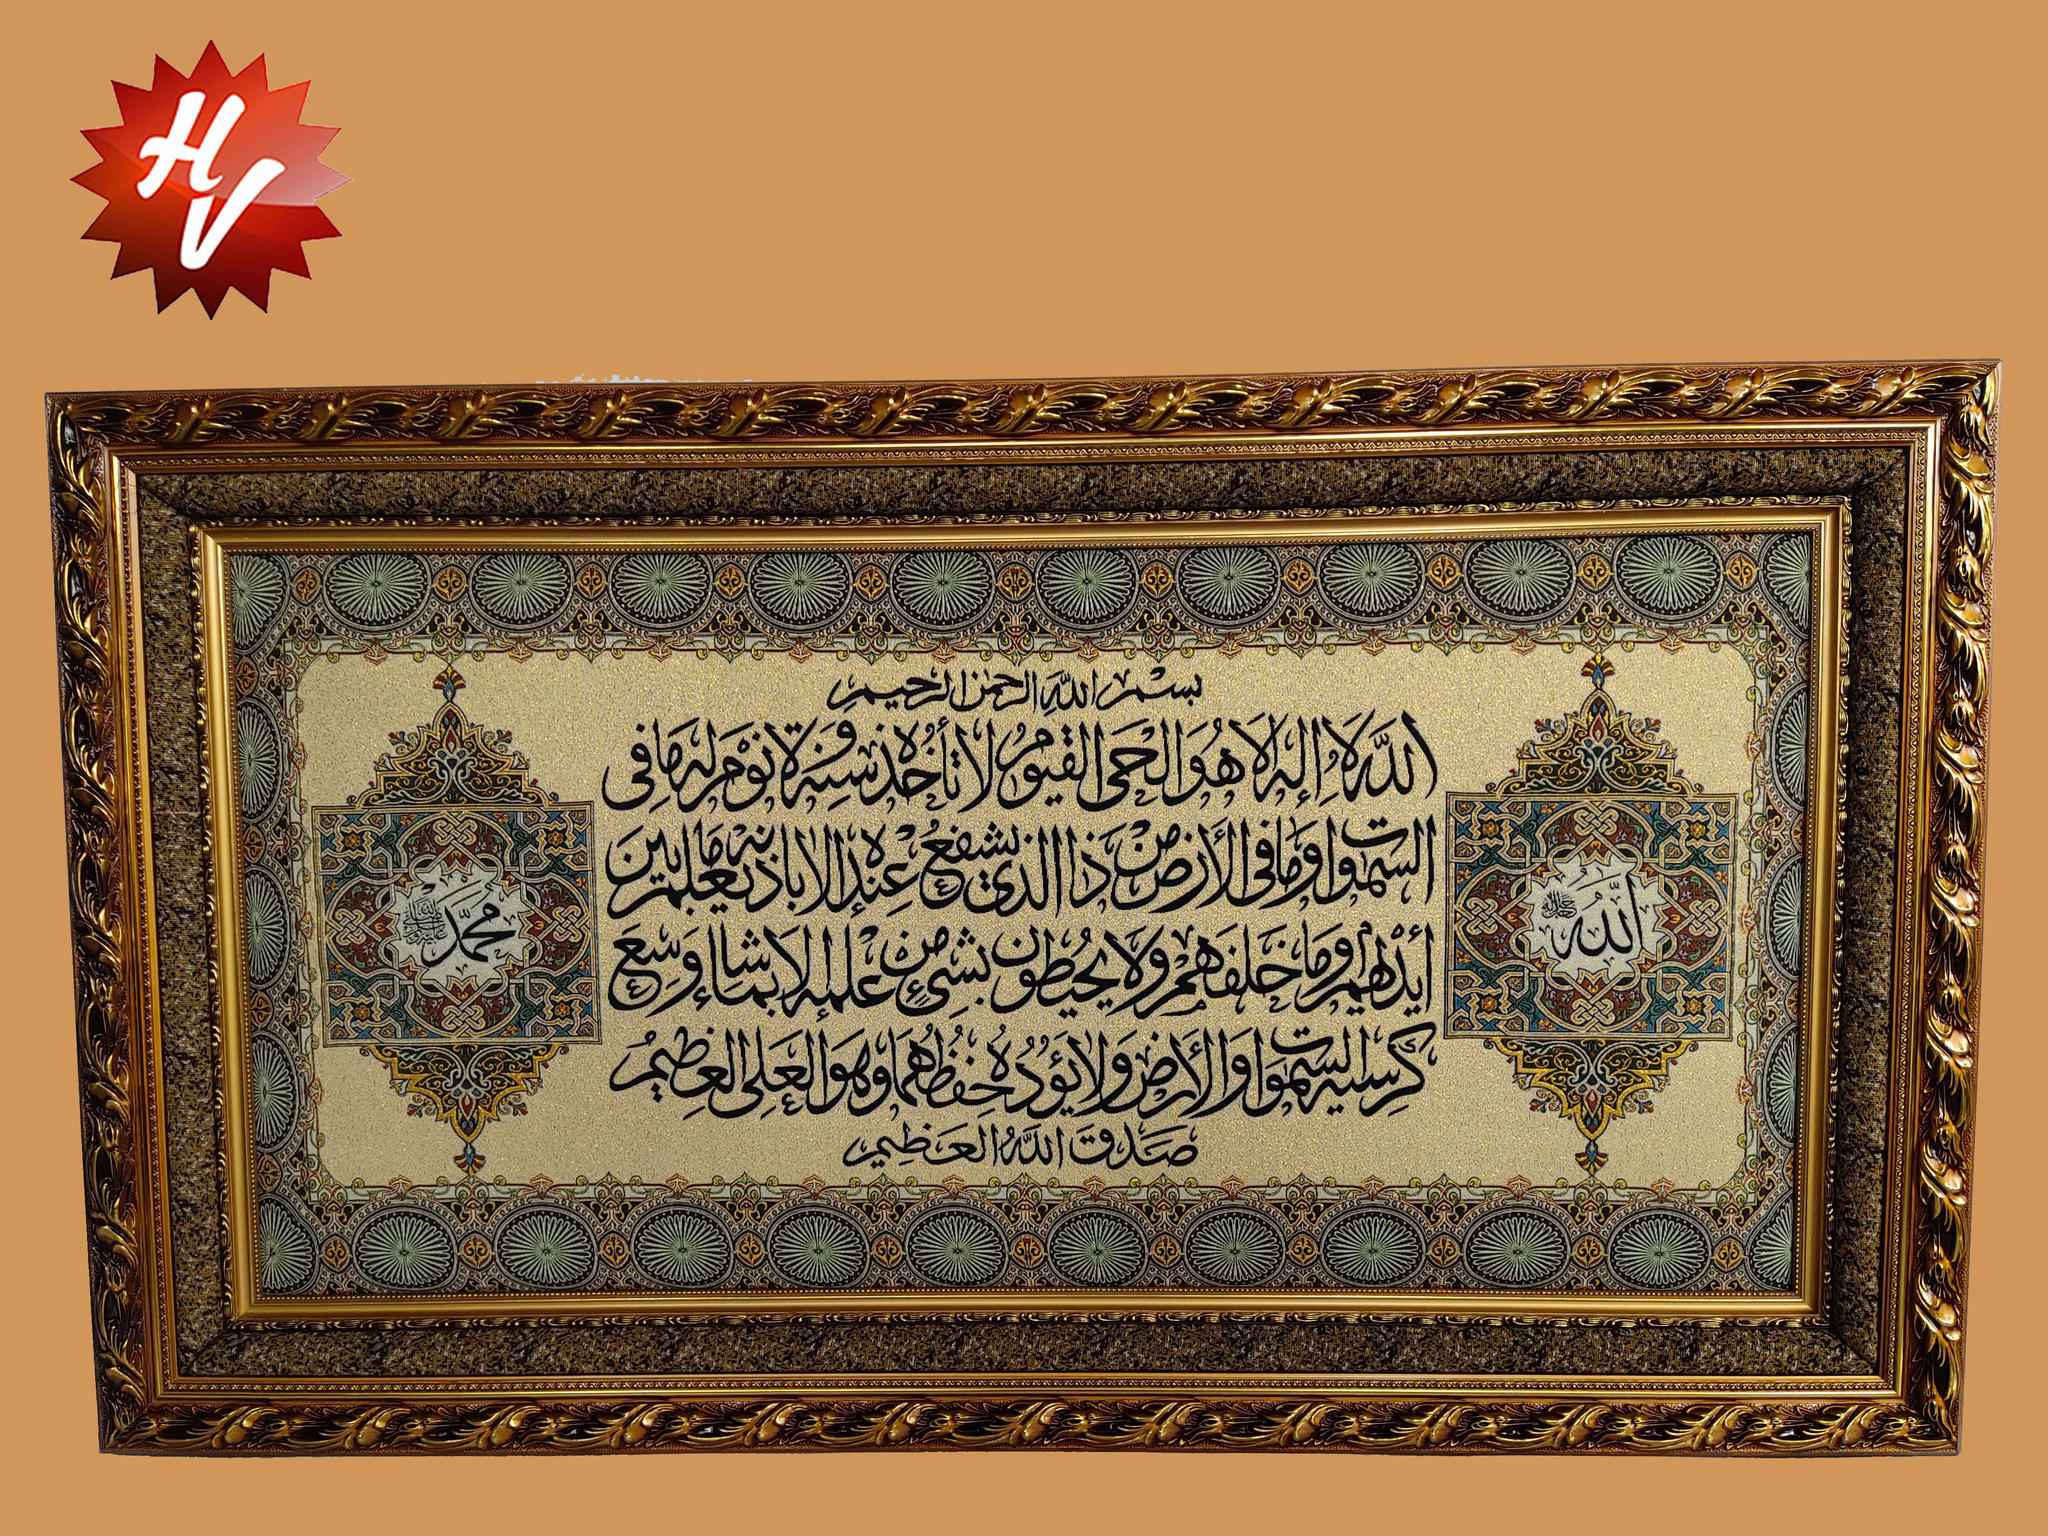 HV
بسم الله الرحمن الرحيم
الله لا إله إلا هو الحي القيوم لا تأخذه سنة ولا نوم له ما في
السموات وما في الأرض من ذا الذي يشفع عنده إلا بإذنه يعلم ما بين
أيديهم وما خلفهم ولا يحيطون بشيء من علمه إلا بما شاء وسع
كرسيه السموات والأرض ولا يؤده حفظهما وهو العلي العظيم
صدق الله العظيم
الله
محمد